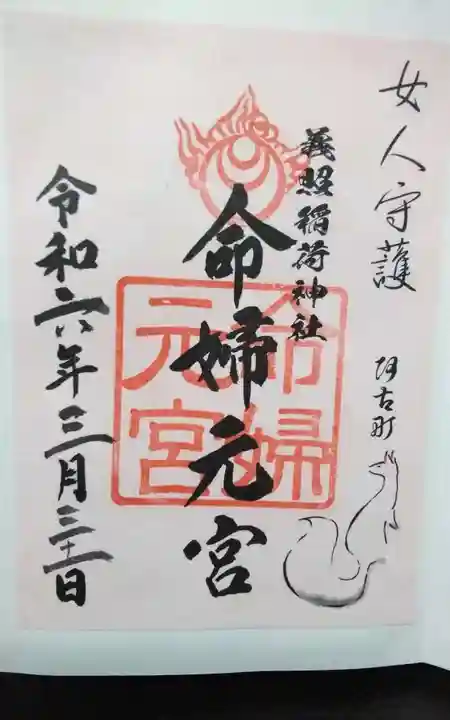 女人守護
阿古町
義照稲荷神社
命婦元宮
命婦
元宮
令和六年三月三十一日